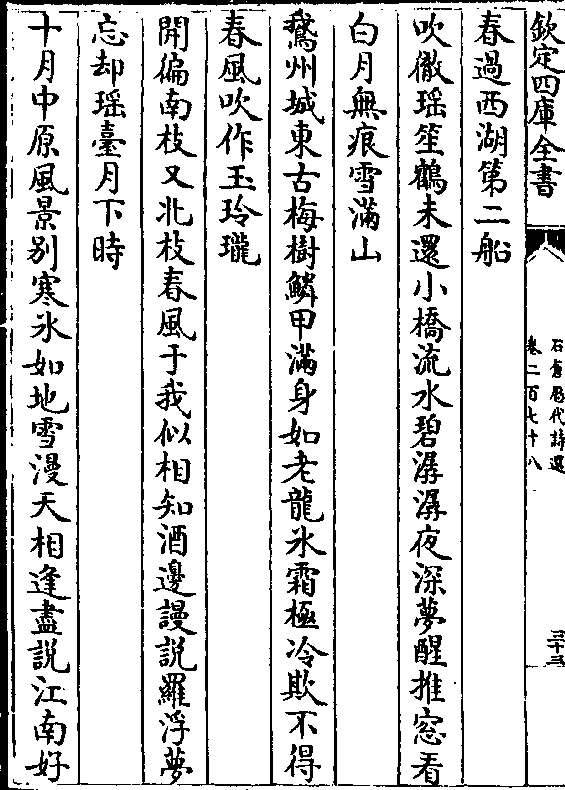 欽定四庫全書
石倉歷代詩選
卷二百七十八
三十三
春過西湖第二船
吹徹瑶笙鶴未還小橋流水碧潺潺夜深夢醒推窓看
白月無痕雪滿山
鵞州城東古梅樹鱗甲滿身如老龍氷霜極冷欺不得
春風吹作玉玲瓏
開徧南枝又北枝春風于我似相知酒邊謾説羅浮夢
忘却瑶臺月下時
十月中原風景别寒氷如地雪漫天相逢盡説江南好